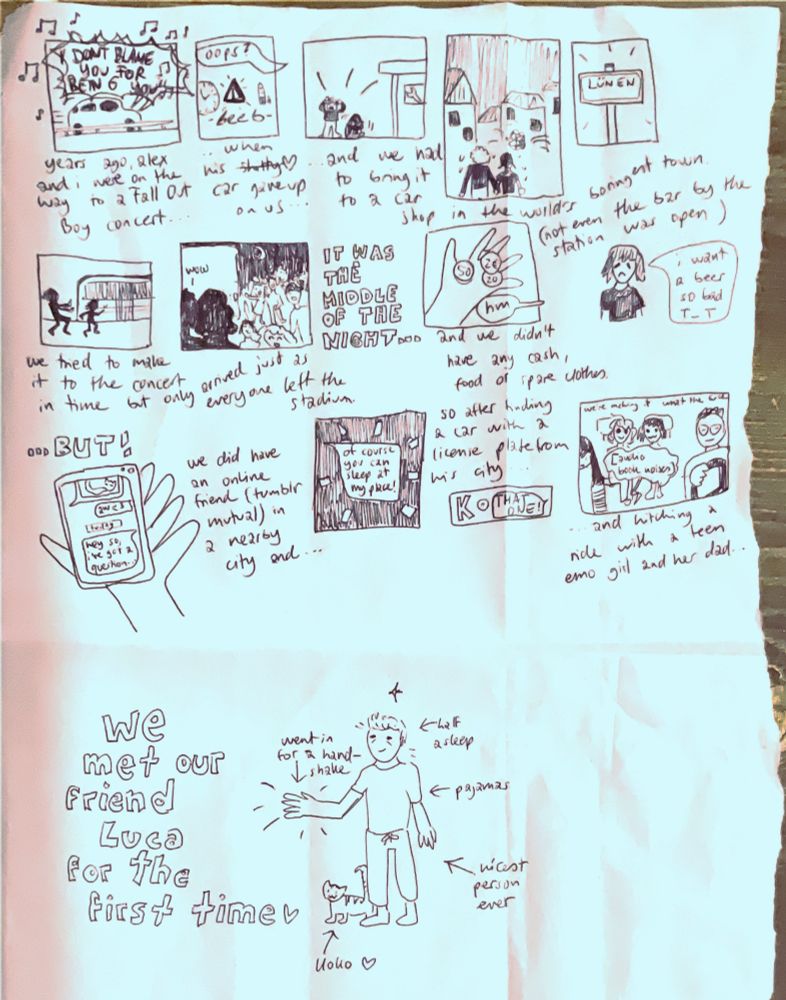 I DONT BLAME
YOU FOR
BEING YOU
OOPS!
-beeb-
LÜNEN
years ago, alex
and i were on the
way to a Fall Out
Boy concert...
...when
his shitty♡
car gave up
on us...
...and we had
to bring it
to a car
shop in the world's boringest town.
(not even the bar by the
station was open)
WOW
!
IT WAS
THE
MIDDLE
OF THE
NIGHT...
50
20
20
hm
i want
a beer
so bad
T_T
we tried to make
it to the concert
in time but only arrived just as
everyone left the
stadium.
and we didn't
have any cash,
food or spare clothes.
...BUT!
hey so,
i've got a
question..
we did have
an online
friend (tumblr
mutual) in
a nearby
city and...
of course
you can
sleep at
my place!
so after finding
a car with a
license plate from
his city...
K THAT
ONE!
we're making it
audio
book noises
...and hitching a
ride with a teen
emo girl and her dad...
We
met our
friend
Luca
for the
first time♡
went in
for a hand-
shake
half
asleep
pajamas
nicest
person
ever
Koko ♡